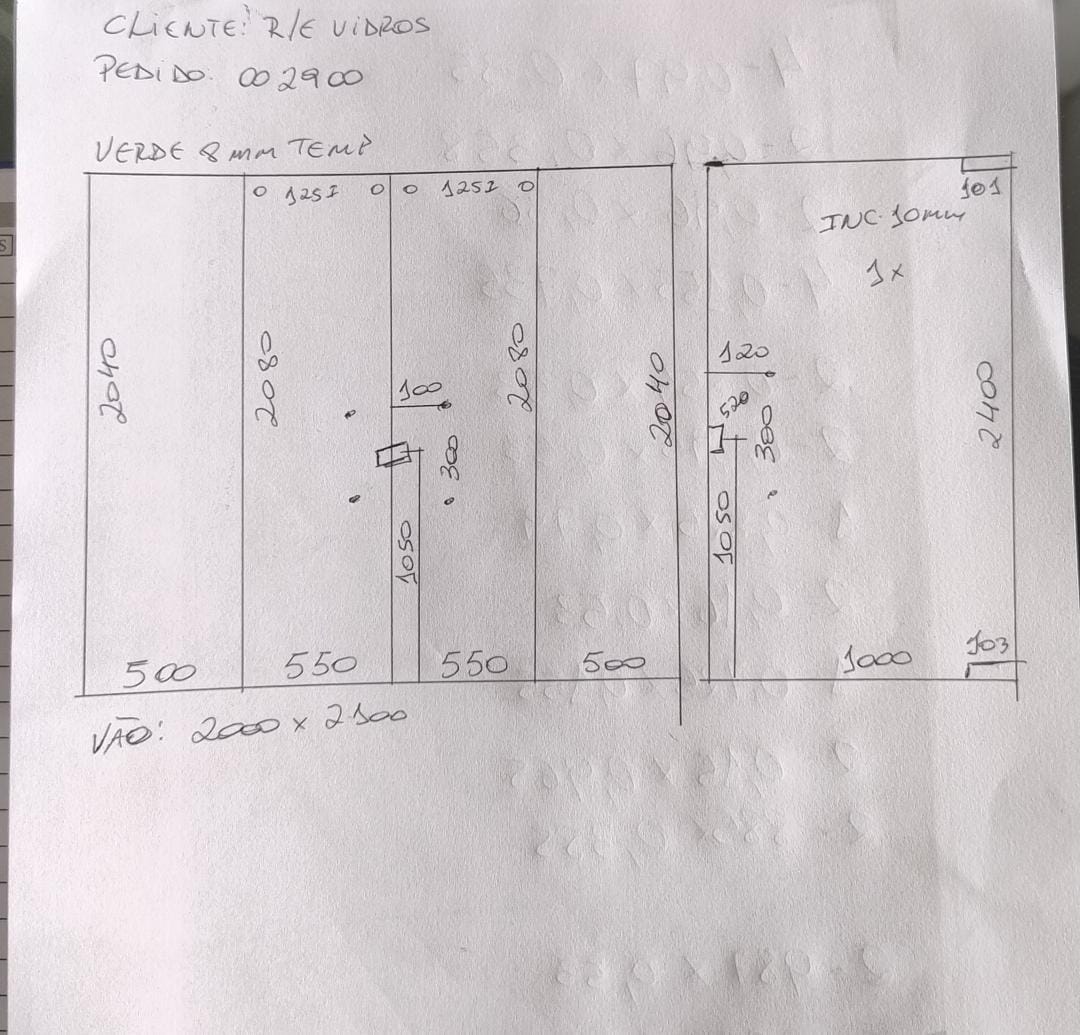 CLIENTE: R/E VIDROS
PEDIDO: 002900
VERDE 8mm TEMP
1257 1257
2040
2080
2080
2040
100
300
1050
500 550 550 500
VÃO: 2000 x 2100
101
INC. 10mm
1x
120
520
300
1050
2400
103
1000